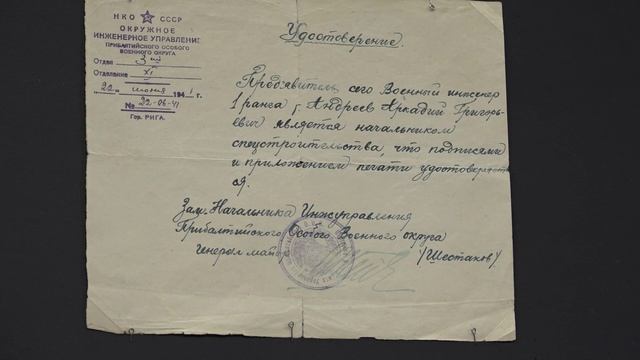 НКО СССР
ОКРУЖНОЕ
ИНЖЕНЕРНОЕ УПРАВЛЕНИЕ
ПРИБАЛТИЙСКОГО ОСОБОГО
ВОЕННОГО ОКРУГА
Отдел 3-ий
Отделение XI
22 июня 1941 г.
№ 22-06-41
Гор. РИГА.
Удостоверение.
Предъявитель сего Военный инженер
1 ранга, Андреев Аркадий Григорь-
евич является начальником
спецстроительства, что подписями
и приложением печати удостоверяет-
ся.
Зам. Начальника Инжуправления
Прибалтийского Особого Военного округа
Генерал майор /Шестаков/